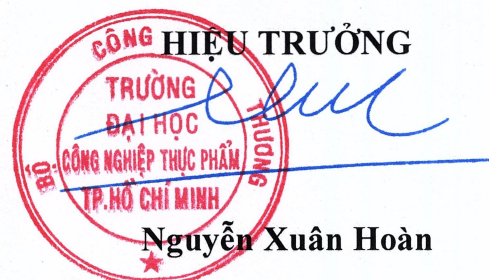 HIỆU TRƯỞNG
BỘ CÔNG THƯƠNG
TRƯỜNG
ĐẠI HỌC
CÔNG NGHIỆP THỰC PHẨM
TP.HỒ CHÍ MINH
Nguyễn Xuân Hoàn